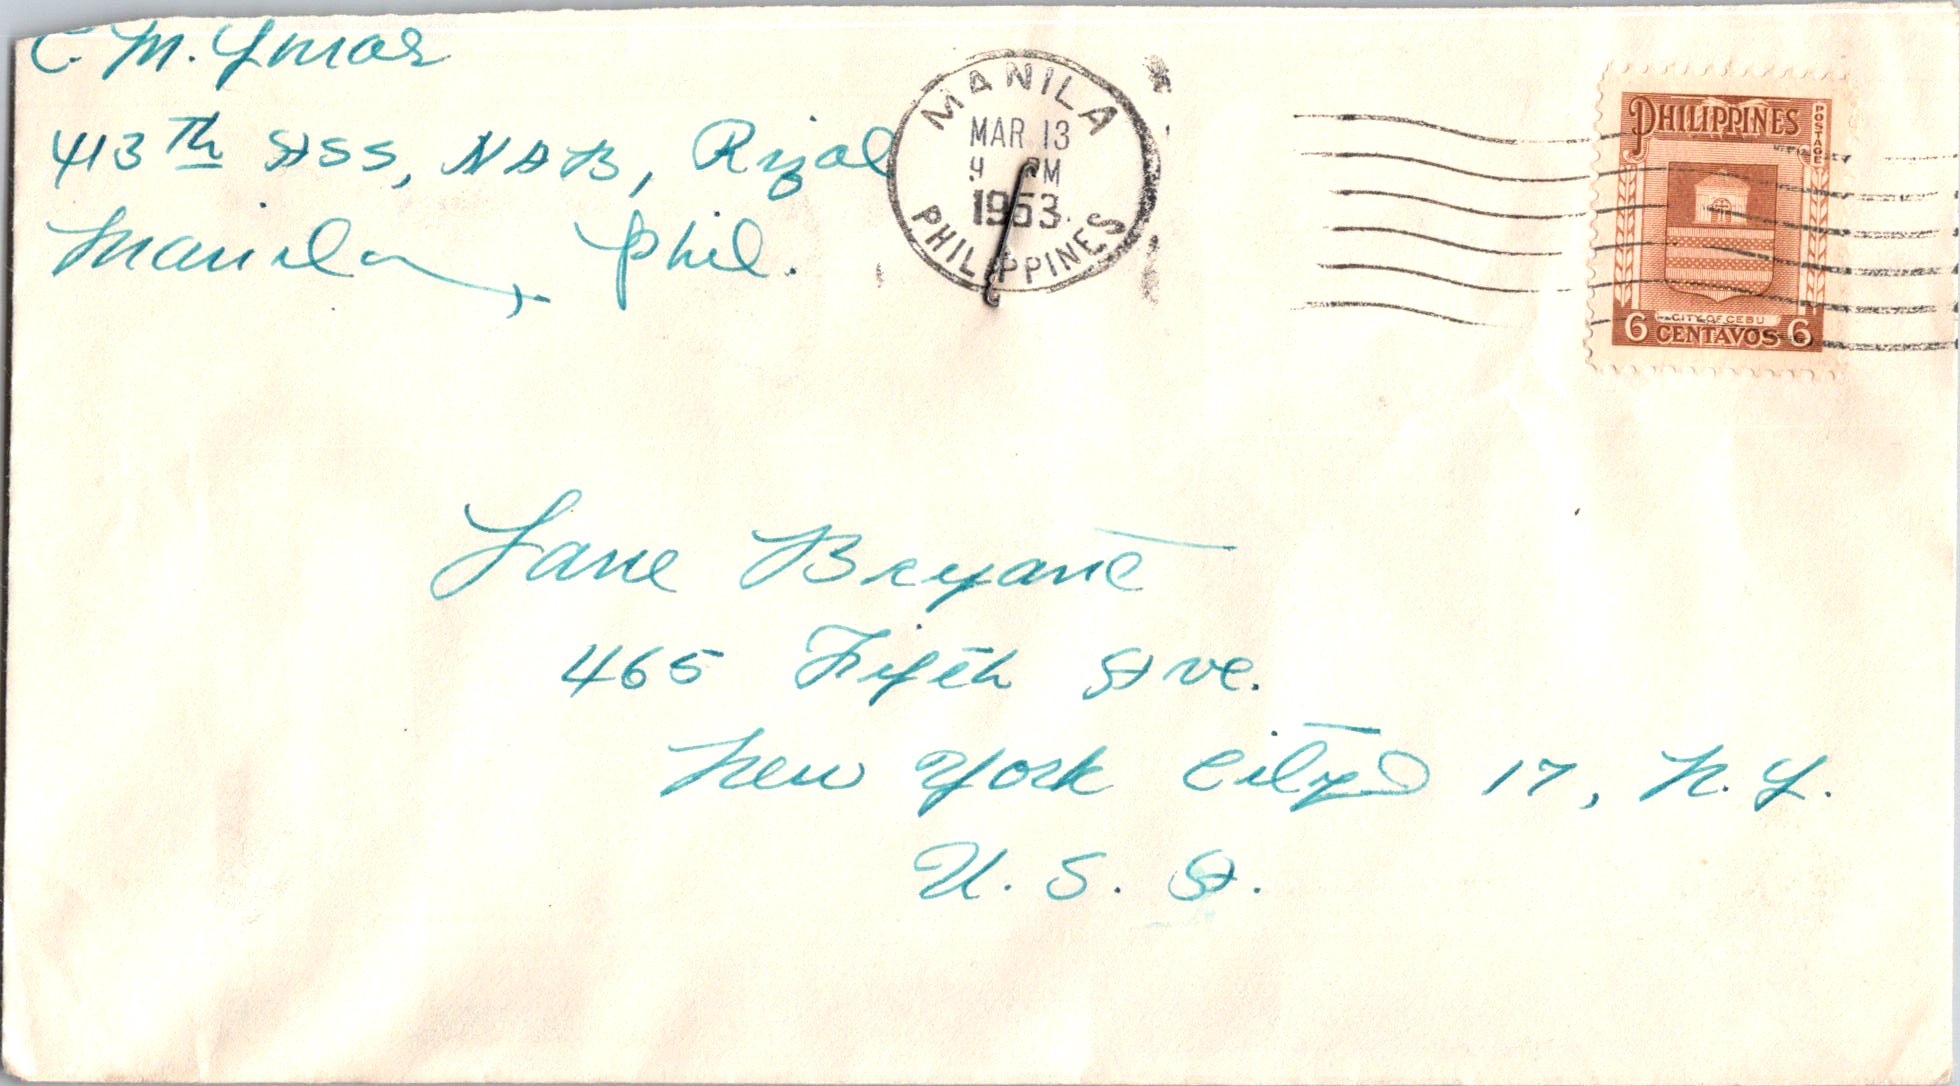 C. M. Ymas
413th ASS, NAB, Rizal
Manila, Phil.
MANILA
MAR 13
9 PM
1953
PHILIPPINES
PHILIPPINES
POSTAGE
CITY OF CEBU
6 CENTAVOS 6
Lane Bryant
465 Fifth Ave.
New York City 17, N.Y.
U. S. A.